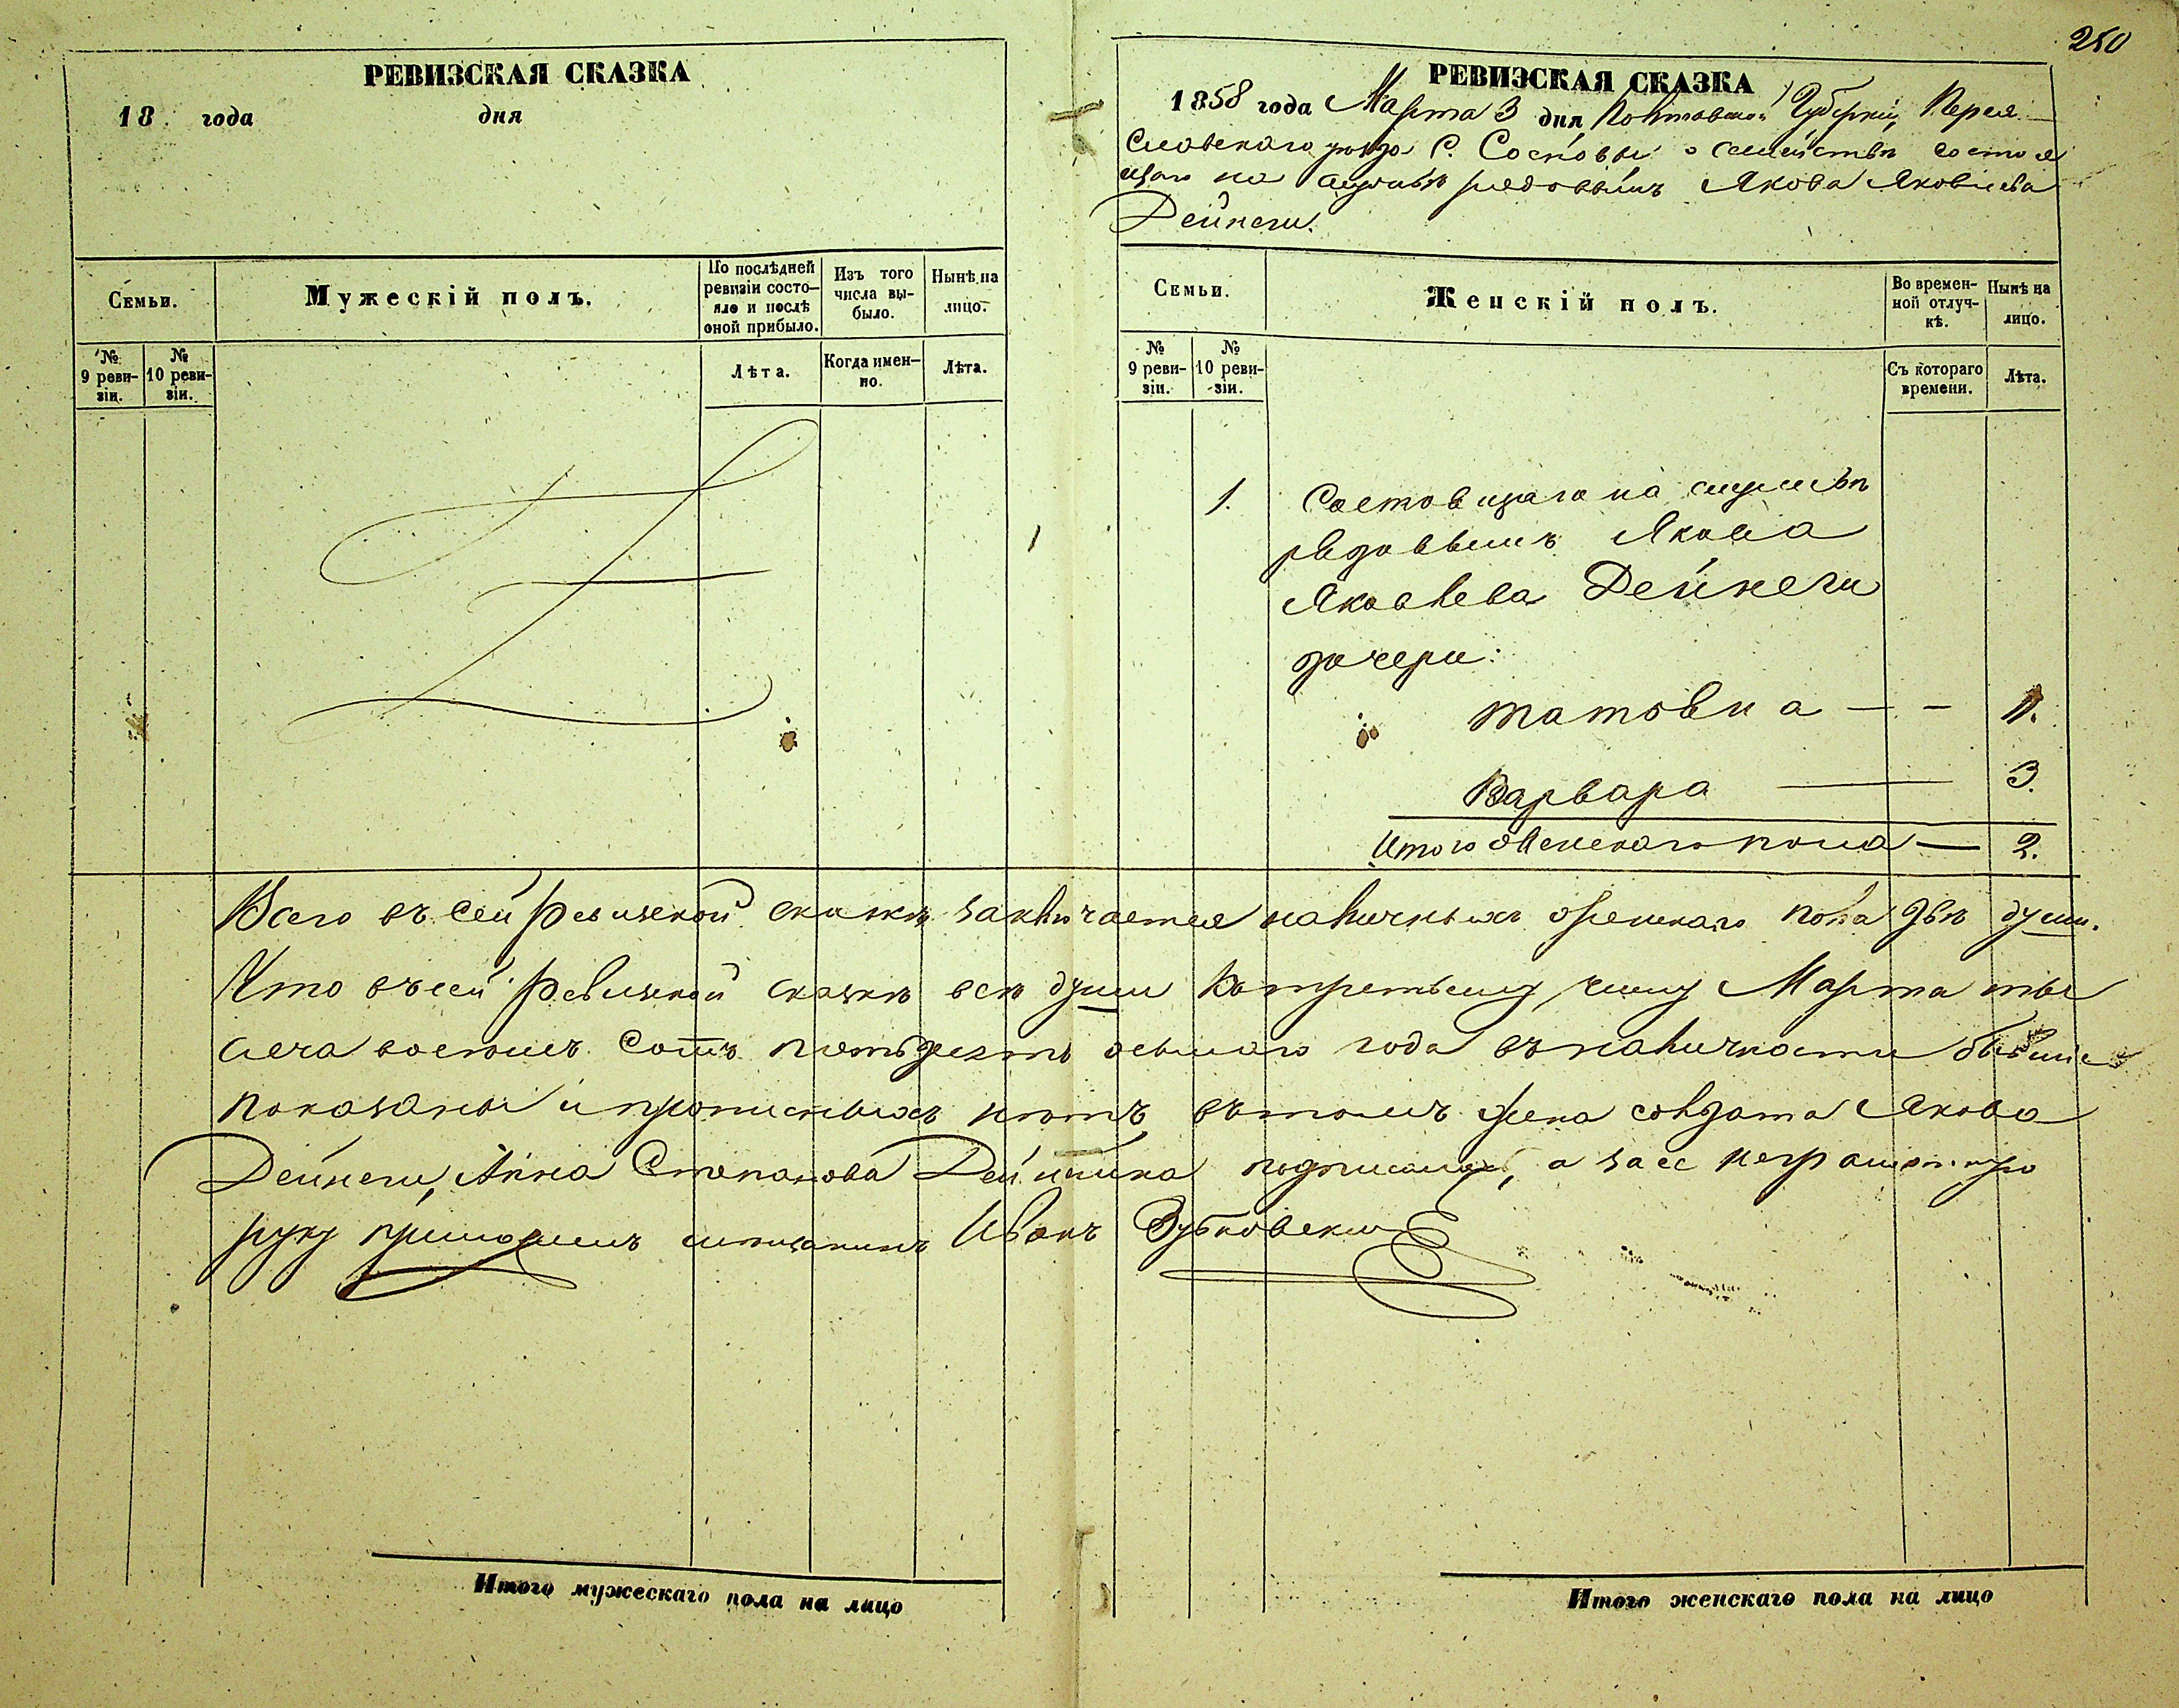 250
РЕВИЗСКАЯ СКАЗКА
18 года дня
РЕВИЗСКАЯ СКАЗКА
1858 года Марта 3 дня Полтавской Губерніи, Перея
Славскаго уѣзда С. Сосновы о Семействѣ состоя
щаго на службѣ рядовымъ Якова Яковлева
Дейнеги.
Семьи.
Мужескій полъ.
По послѣдней ревизіи состояло и послѣ оной прибыло.
Изъ того числа выбыло.
Нынѣ на лицо.
№ 9 ревизіи.
№ 10 ревизіи.
Лѣта.
Когда именно.
Лѣта.
Семьи.
Женскій полъ.
Во временной отлучкѣ.
Нынѣ на лицо.
№ 9 ревизіи.
№ 10 ревизіи.
Съ котораго времени.
Лѣта.
1. Состоящаго на службѣ
рядовымъ Якова
Яковлева Дейнеги
дочери:
Варвара 3.
Итого женскаго пола 2.
Всего въ сей Ревизской сказкѣ заключается наличныхъ женскаго пола двѣ души.
Что въ сей Ревизской сказкѣ всѣ души къ третьему числу Марта ты
сеча восемь сотъ пятьдесятъ осьмаго года въ наличности бывшіе
показаны и прописныхъ нѣтъ въ томъ жена солдата Якова
Дейнеги, Анна Степанова Дейнека а за ее неграмотную
руку приложилъ мещанинъ Иванъ Зубковскій
Итого мужескаго пола на лицо
Итого женскаго пола на лицо